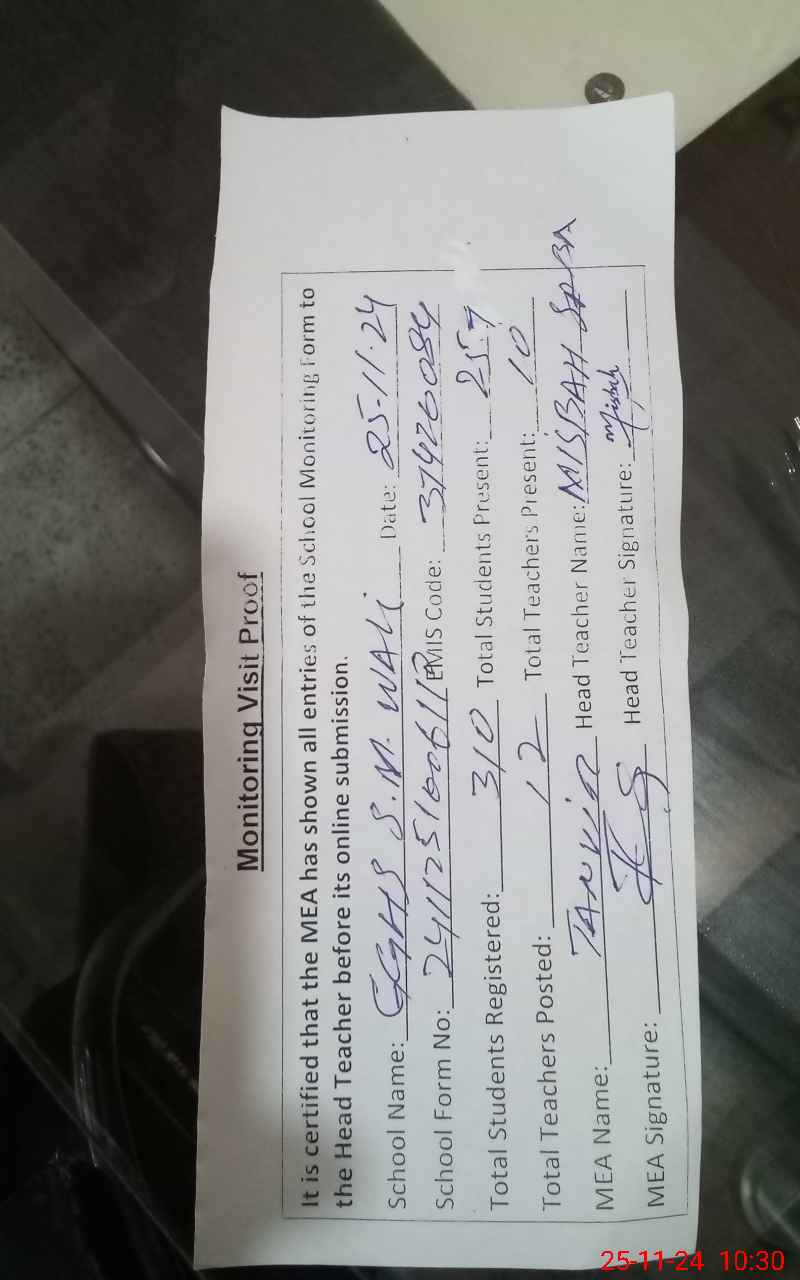 Monitoring Visit Proof
It is certified that the MEA has shown all entries of the School Monitoring Form to
the Head Teacher before its online submission.
School Name: GGHS S.M. WALI Date: 25-11-24
School Form No: EMIS Code: 37420084
Total Students Registered: 310 Total Students Present: 257
Total Teachers Posted: 12 Total Teachers Present: 10
MEA Name: TANVIR Head Teacher Name: MISBAH SABA
MEA Signature: Head Teacher Signature: Misbah
25-11-24 10:30